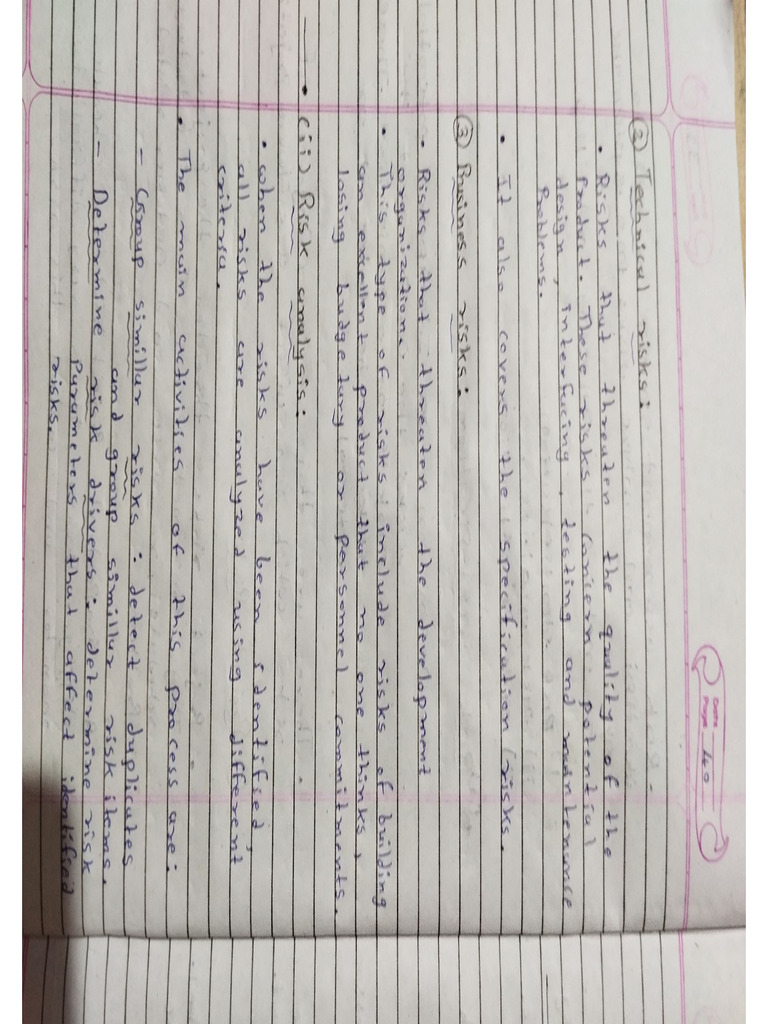 Date
Page 40
② Technical risks:
• Risks that threaten the quality of the
product. These risks concern potential
design, interfacing, testing and maintenance
Problems.
• It also covers the specification risks.
③ Business risks:
• Risks that threaten the development
organization.
• This type of risks include risks of building
an exellent product that no one thinks,
losing budgetary or personnel commitments.
(ii) Risk analysis:
• when the risks have been identified,
all risks are analyzed using different
criteria.
• The main activities of this process are:
- Group simillar risks: detect duplicates
and group simillar risk items.
- Determine risk drivers: determine risk
parameters that affect identified
risks.